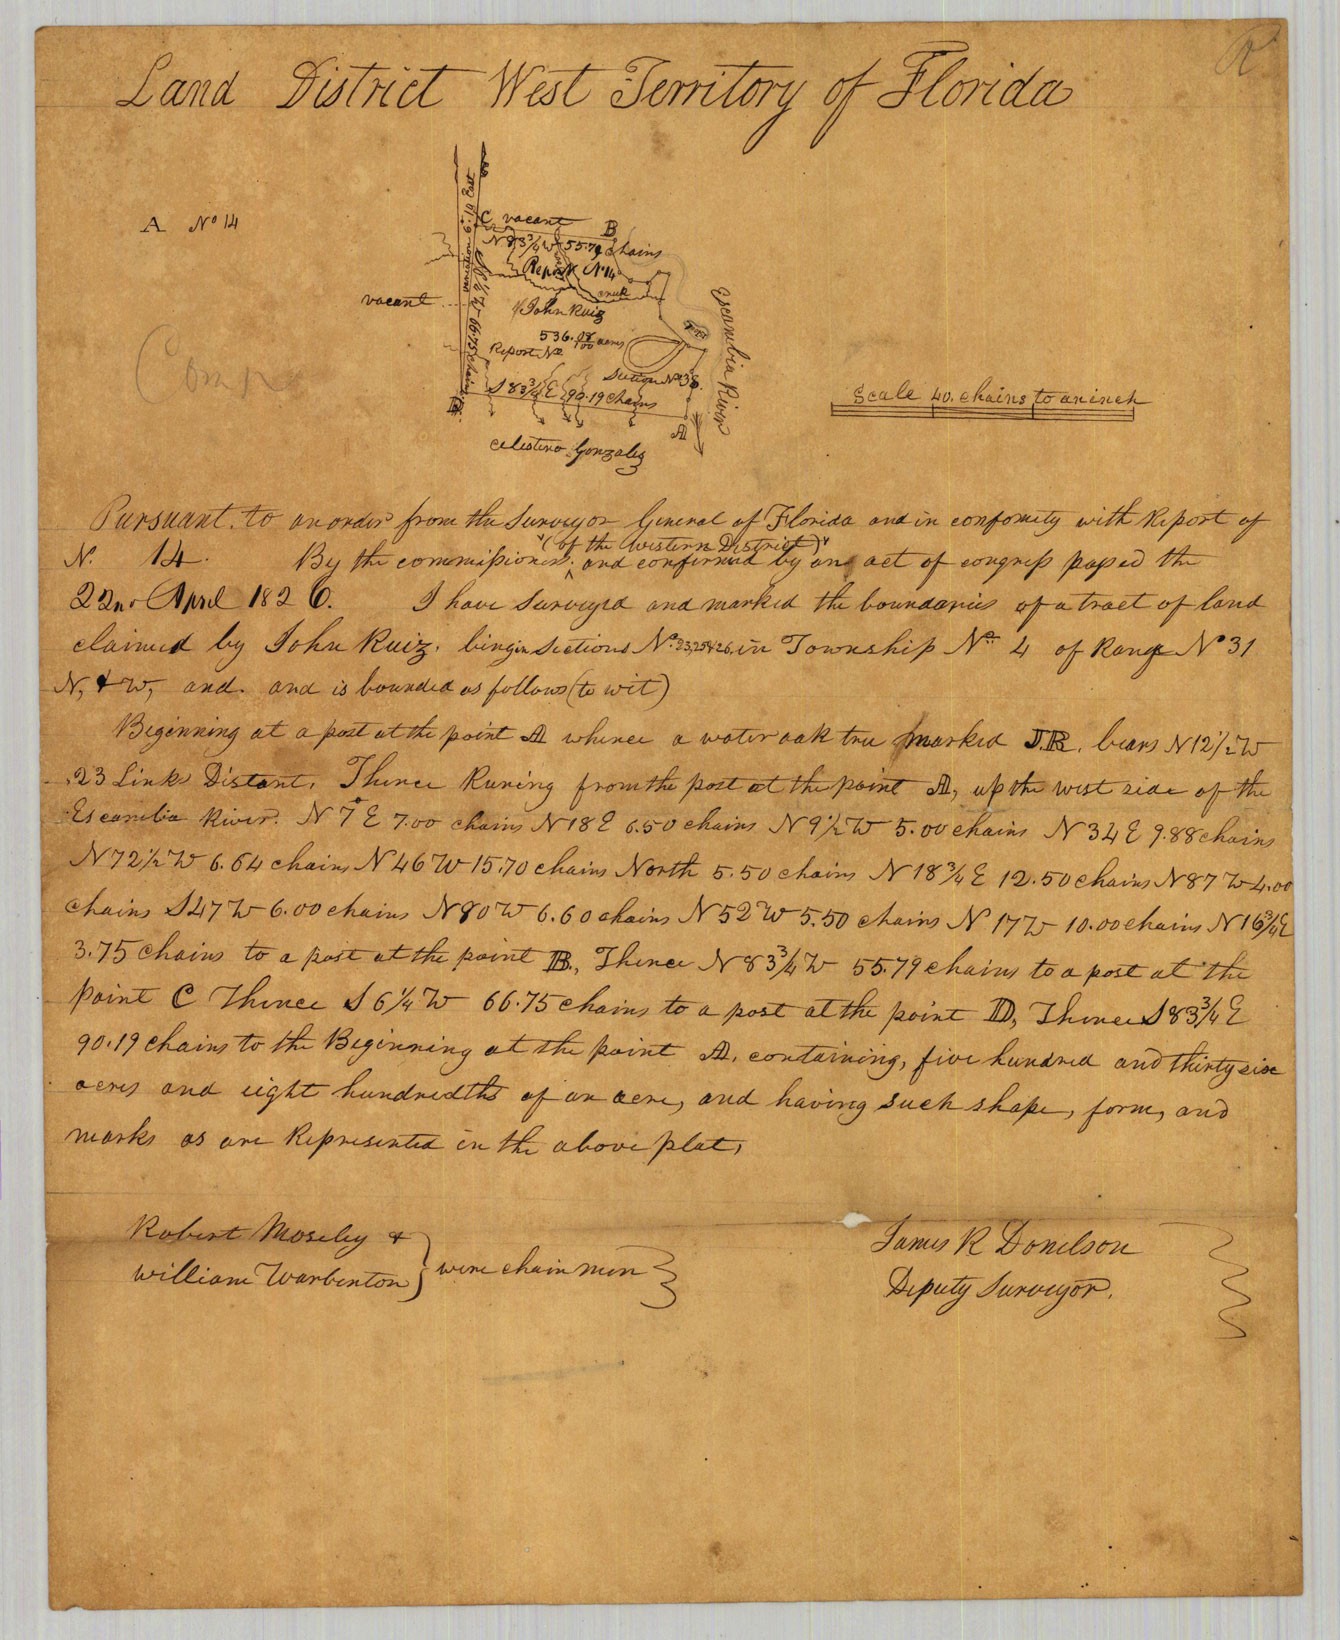 R
Land District West Territory of Florida
A No 14
variation 6°.10 East
C vacant B
N 83 3/4 W 55.79 chains
Report No 14
creek
vacant
John Ruiz
536.08/100 acres
Report No
S 6 1/4 W 66.75 chains
Section No 38.
D S 83 3/4 E 90.19 chains
A
Escambia River
Celestino Gonzalez
Scale 40. chains to an inch
(Comp
Pursuant. to an order from the Surveyor General of Florida and in confomity with Report of
(of the Western District)
N. 14. By the commissioners ^ and confirmed by an act of congress passed the
22nd April 1826. I have Surveyed and marked the boundaries of a tract of land
claimed by John Ruiz. being in Sections No. 23, 25 & 26. in Township No 4 of Range No 31
N, & W, and. and is bounded as follows (to wit)
Beginning at a post at the point A whence a water oak tree marked J.R. bears N 12 1/2 W
.23 Links Distant. Thence Runing from the post at the point A, up the west side of the
Escambia River. N 7° E 7.00 chains N 18 E 6.50 chains N 9 1/2 W 5.00 chains N 34 E 9.88 chains
N 72 1/2 W 6.64 chains N 46 W 15.70 chains North 5.50 chains N 18 3/4 E 12.50 chains N 87 W 4.00
chains S 47 W 6.00 chains N 80 W 6.60 chains N 52 W 5.50 chains N 17 W 10.00 chains N 16 3/4 E
3.75 chains to a post at the point B., Thence N 83 3/4 W 55.79 chains to a post at the
point C Thence S 6 1/4 W 66.75 chains to a post at the point D, Thence S 83 3/4 E
90.19 chains to the Beginning at the point A. containing, five hundred and thirty six
acres and eight hundredths of an acre, and having such shape, form, and
marks as are Represented in the above plat.
Robert Moseley &
William Warbenton } were chain men
James R Donelson
Deputy Surveyor.